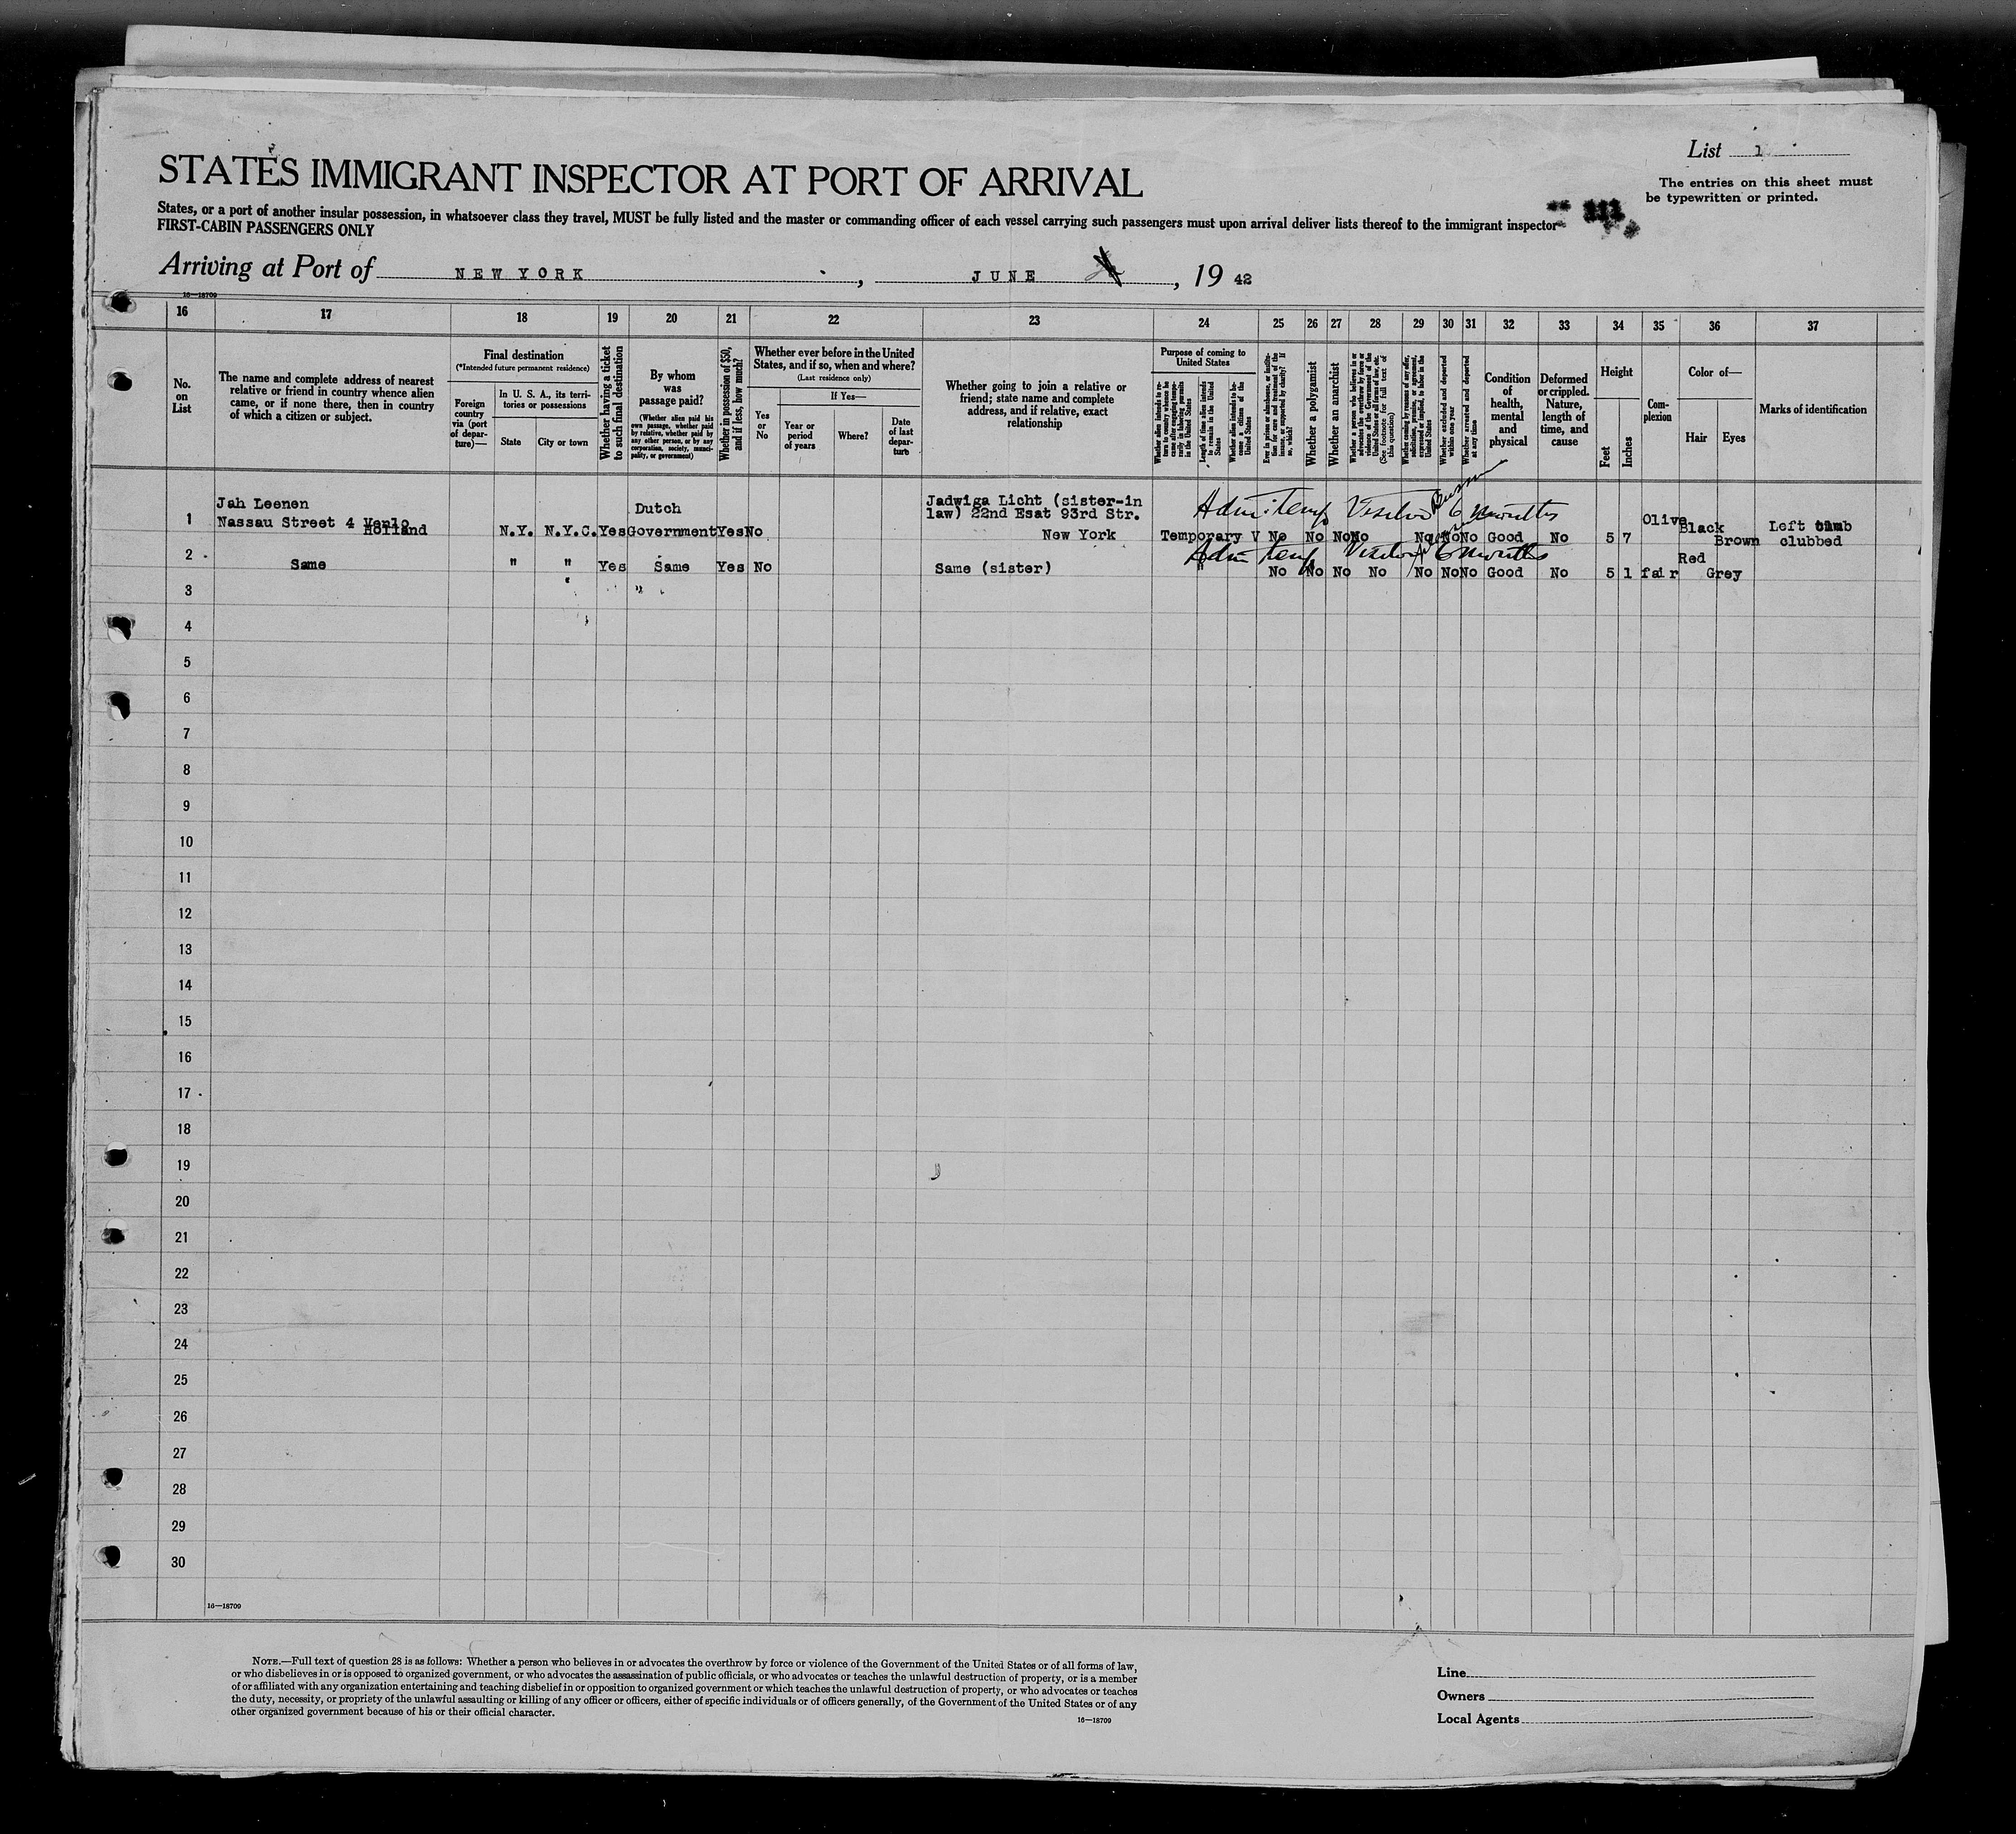 List 2
STATES IMMIGRANT INSPECTOR AT PORT OF ARRIVAL
The entries on this sheet must
be typewritten or printed.
States, or a port of another insular possession, in whatsoever class they travel, MUST be fully listed and the master or commanding officer of each vessel carrying such passengers must upon arrival deliver lists thereof to the immigrant inspector
FIRST-CABIN PASSENGERS ONLY
Arriving at Port of NEW YORK, JUNE, 19 42
16—18709
16 17 18 19 20 21 22 23 24 25 26 27 28 29 30 31 32 33 34 35 36 37
No.
on
List
The name and complete address of nearest
relative or friend in country whence alien
came, or if none there, then in country
of which a citizen or subject.
Final destination
(*Intended future permanent residence)
Foreign
country
via (port
of depar-
ture)—
In U. S. A., its terri-
tories or possessions
State
City or town
Whether having a ticket
to such final destination
By whom
was
passage paid?
(Whether alien paid his
own passage, whether paid
by relative, whether paid by
any other person, or by any
corporation, society, munici-
pality, or government)
Whether in possession of $50,
and if less, how much?
Whether ever before in the United
States, and if so, when and where?
(Last residence only)
Yes
or
No
If Yes—
Year or
period
of years
Where?
Date
of last
depar-
ture
Whether going to join a relative or
friend; state name and complete
address, and if relative, exact
relationship
Purpose of coming to
United States
Whether alien intends to re-
turn to country whence he
came after engaging tempo-
rarily in laboring pursuits
in the United States
Length of time alien intends
to remain in the United
States
Whether alien intends to be-
come a citizen of the
United States
Ever in prison or almshouse, or institu-
tion for care and treatment of the
insane, or supported by charity? If
so, which?
Whether a polygamist
Whether an anarchist
Whether a person who believes in or
advocates the overthrow by force or
violence of the Government of the
United States or all forms of law, etc.
(See footnote for full text of
this question)
Whether coming by reasons of any offer,
solicitation, promise, or agreement,
expressed or implied, to labor in the
United States
Whether excluded and deported
within one year
Whether arrested and deported
at any time
Condition
of
health,
mental
and
physical
Deformed
or crippled.
Nature,
length of
time, and
cause
Height
Feet
Inches
Com-
plexion
Color of—
Hair
Eyes
Marks of identification
Jah Leenen Dutch Jadwiga Licht (sister-in Adm: temp Visitor 6 months
1 Nassau Street 4 Venlo law) 22nd Esat 93rd Str. Olive
Holland N.Y. N.Y.C. Yes Government Yes No New York Temporary V No No No No No No No Good No 5 7 Black Brown Left
clubbed
2 Adm temp Visitor 6 months Red
Same " " Yes Same Yes No Same (sister) " No No No No No No No Good No 5 1 fair Grey
3
4
5
6
7
8
9
10
11
12
13
14
15
16
17
18
19
20
21
22
23
24
25
26
27
28
29
30
16—18709
NOTE.—Full text of question 28 is as follows: Whether a person who believes in or advocates the overthrow by force or violence of the Government of the United States or of all forms of law,
or who disbelieves in or is opposed to organized government, or who advocates the assassination of public officials, or who advocates or teaches the unlawful destruction of property, or is a member
of or affiliated with any organization entertaining and teaching disbelief in or opposition to organized government or which teaches the unlawful destruction of property, or who advocates or teaches
the duty, necessity, or propriety of the unlawful assaulting or killing of any officer or officers, either of specific individuals or of officers generally, of the Government of the United States or of any
other organized government because of his or their official character.
16—18709
Line
Owners
Local Agents